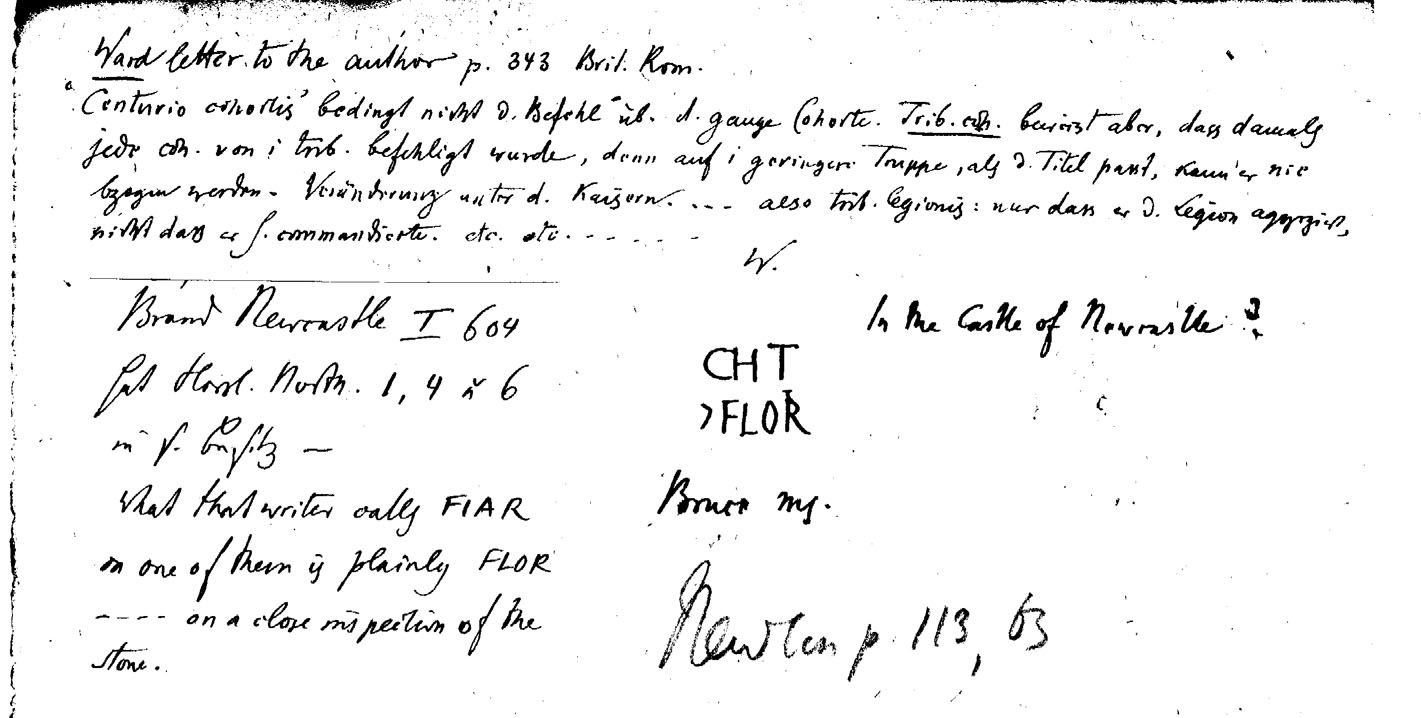 Ward letter to the author p. 343 Brit. Rom.
"Centurio cohortis' bedingt nicht d. Befehl üb. d. ganze Cohorte. Trib. coh. beweist aber, dass damals
jede coh. von 1 trib. befehligt wurde, denn auf 1 geringere Truppe, als d. Titel passt, kann er nie
bezogen werden. Veränderung unter d. Kaisern. --- also trib. legionis: nur dass er d. Legion aggregiert,
nicht dass er s. commandierte. etc. etc. - - - - - -
W.
Brand Newcastle I 604
hat Horsl. North. 1, 4 u 6
in s. Besitz —
What that writer calls FIAR
on one of them is plainly FLOR
---- on a close inspection of the
stone.
In the Castle of Newcastle ?
CHT
>FLOR
Bruce ms.
p. 113, 63